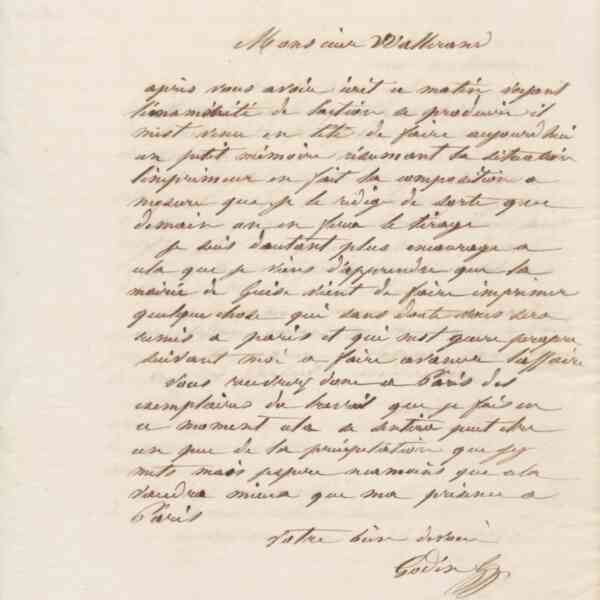 Monsieur Wallerand
après vous avoir écrit ce matin voyant
l'énormité de l'action se produire il
m'est venu en tête de faire aujourd'hui
un petit mémoire résumant la situation
l'imprimeur en fait la composition a
mesure que je le rédige de sorte que
demain on en fera le tirage
je suis d'autant plus encouragé a
cela que je viens d'apprendre que la
mairie de Guise vient de faire imprimer
quelque chose qui sans doute vous sera
remis a paris et qui n'est guere propre
suivant moi a faire avancer l'affaire
Vous recevrez donc a Paris des
exemplaires du travail que je fais en
ce moment cela se sentira peut etre
un peu de la précipitation que j'y
mets mais j'espere neanmoins que cela
vaudra mieux que ma présence a
Paris
votre bien dévoué
Godin